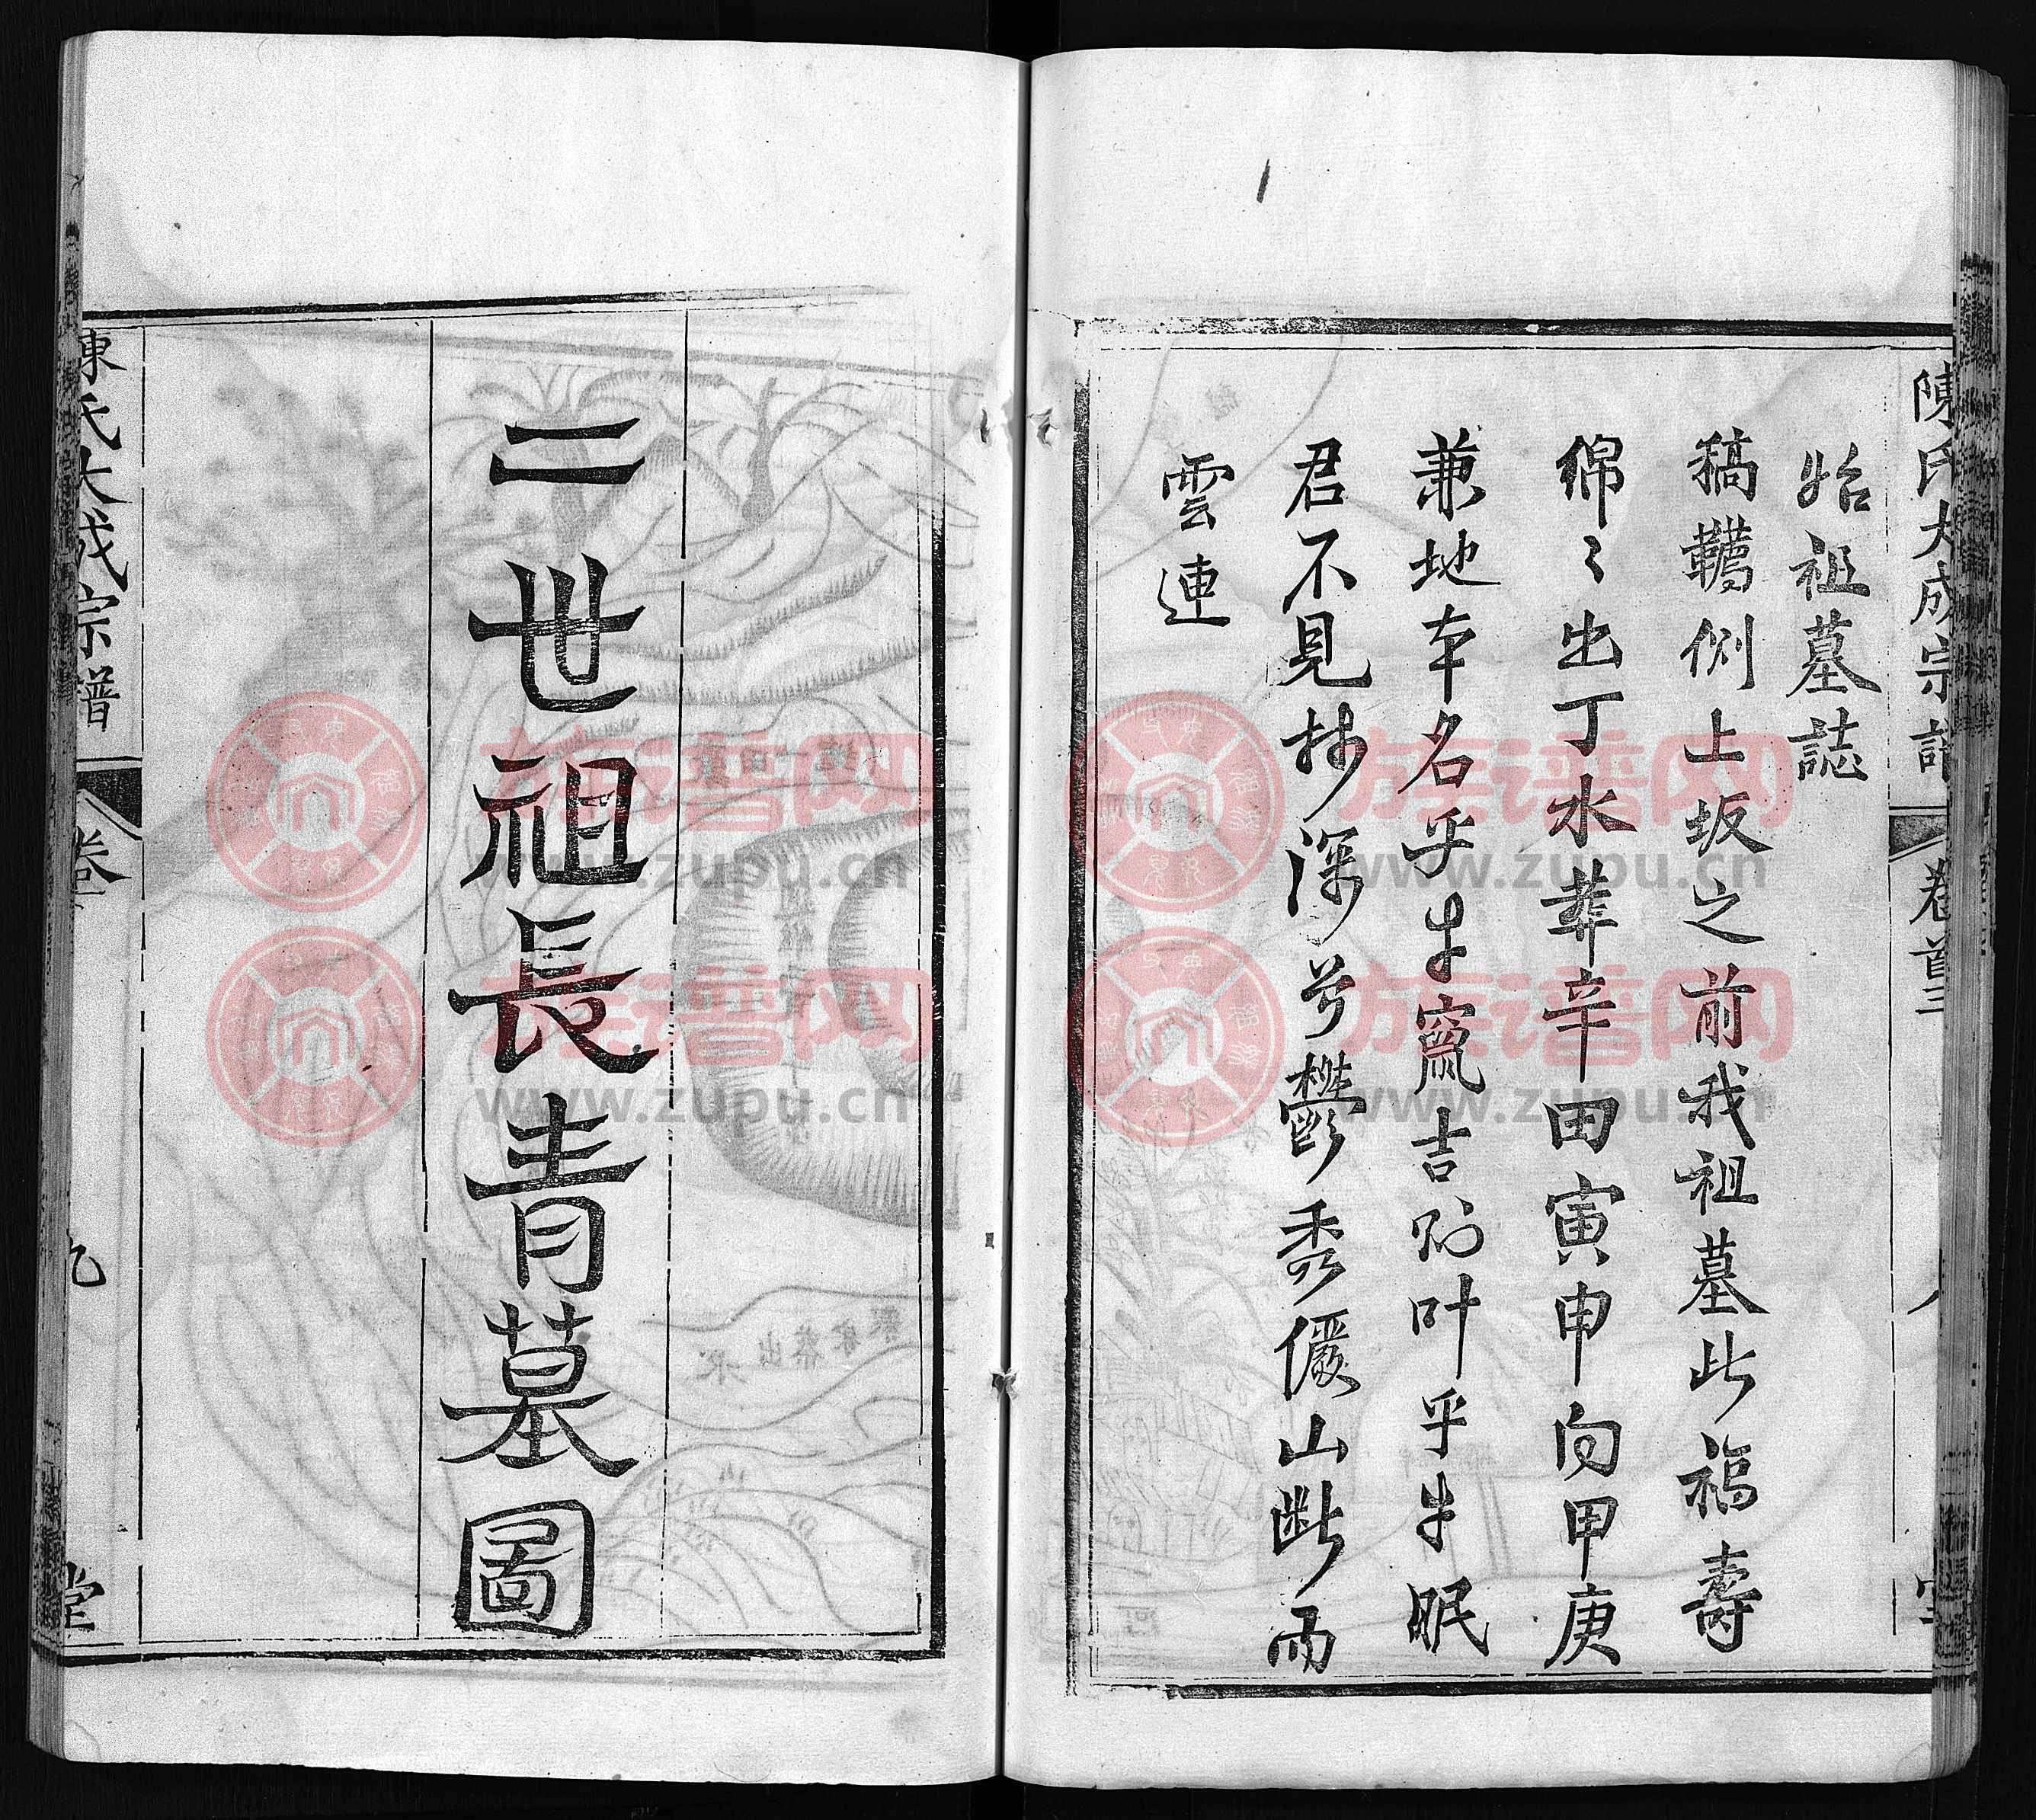 陳氏大成宗譜 卷首三 八
始祖墓誌
稿韉側上坂之前我祖墓此福壽
綿々出丁水葬辛田寅申向甲庚
兼地本名乎牛窩吉別叶乎牛眠
君不見林深兮鬱秀儼山斷而
雲連
二世祖長青墓圖
陳氏大成宗譜 卷 九 堂
族谱网
www.zupu.cn
族谱网
www.zupu.cn
族谱网
www.zupu.cn
族谱网
www.zupu.cn